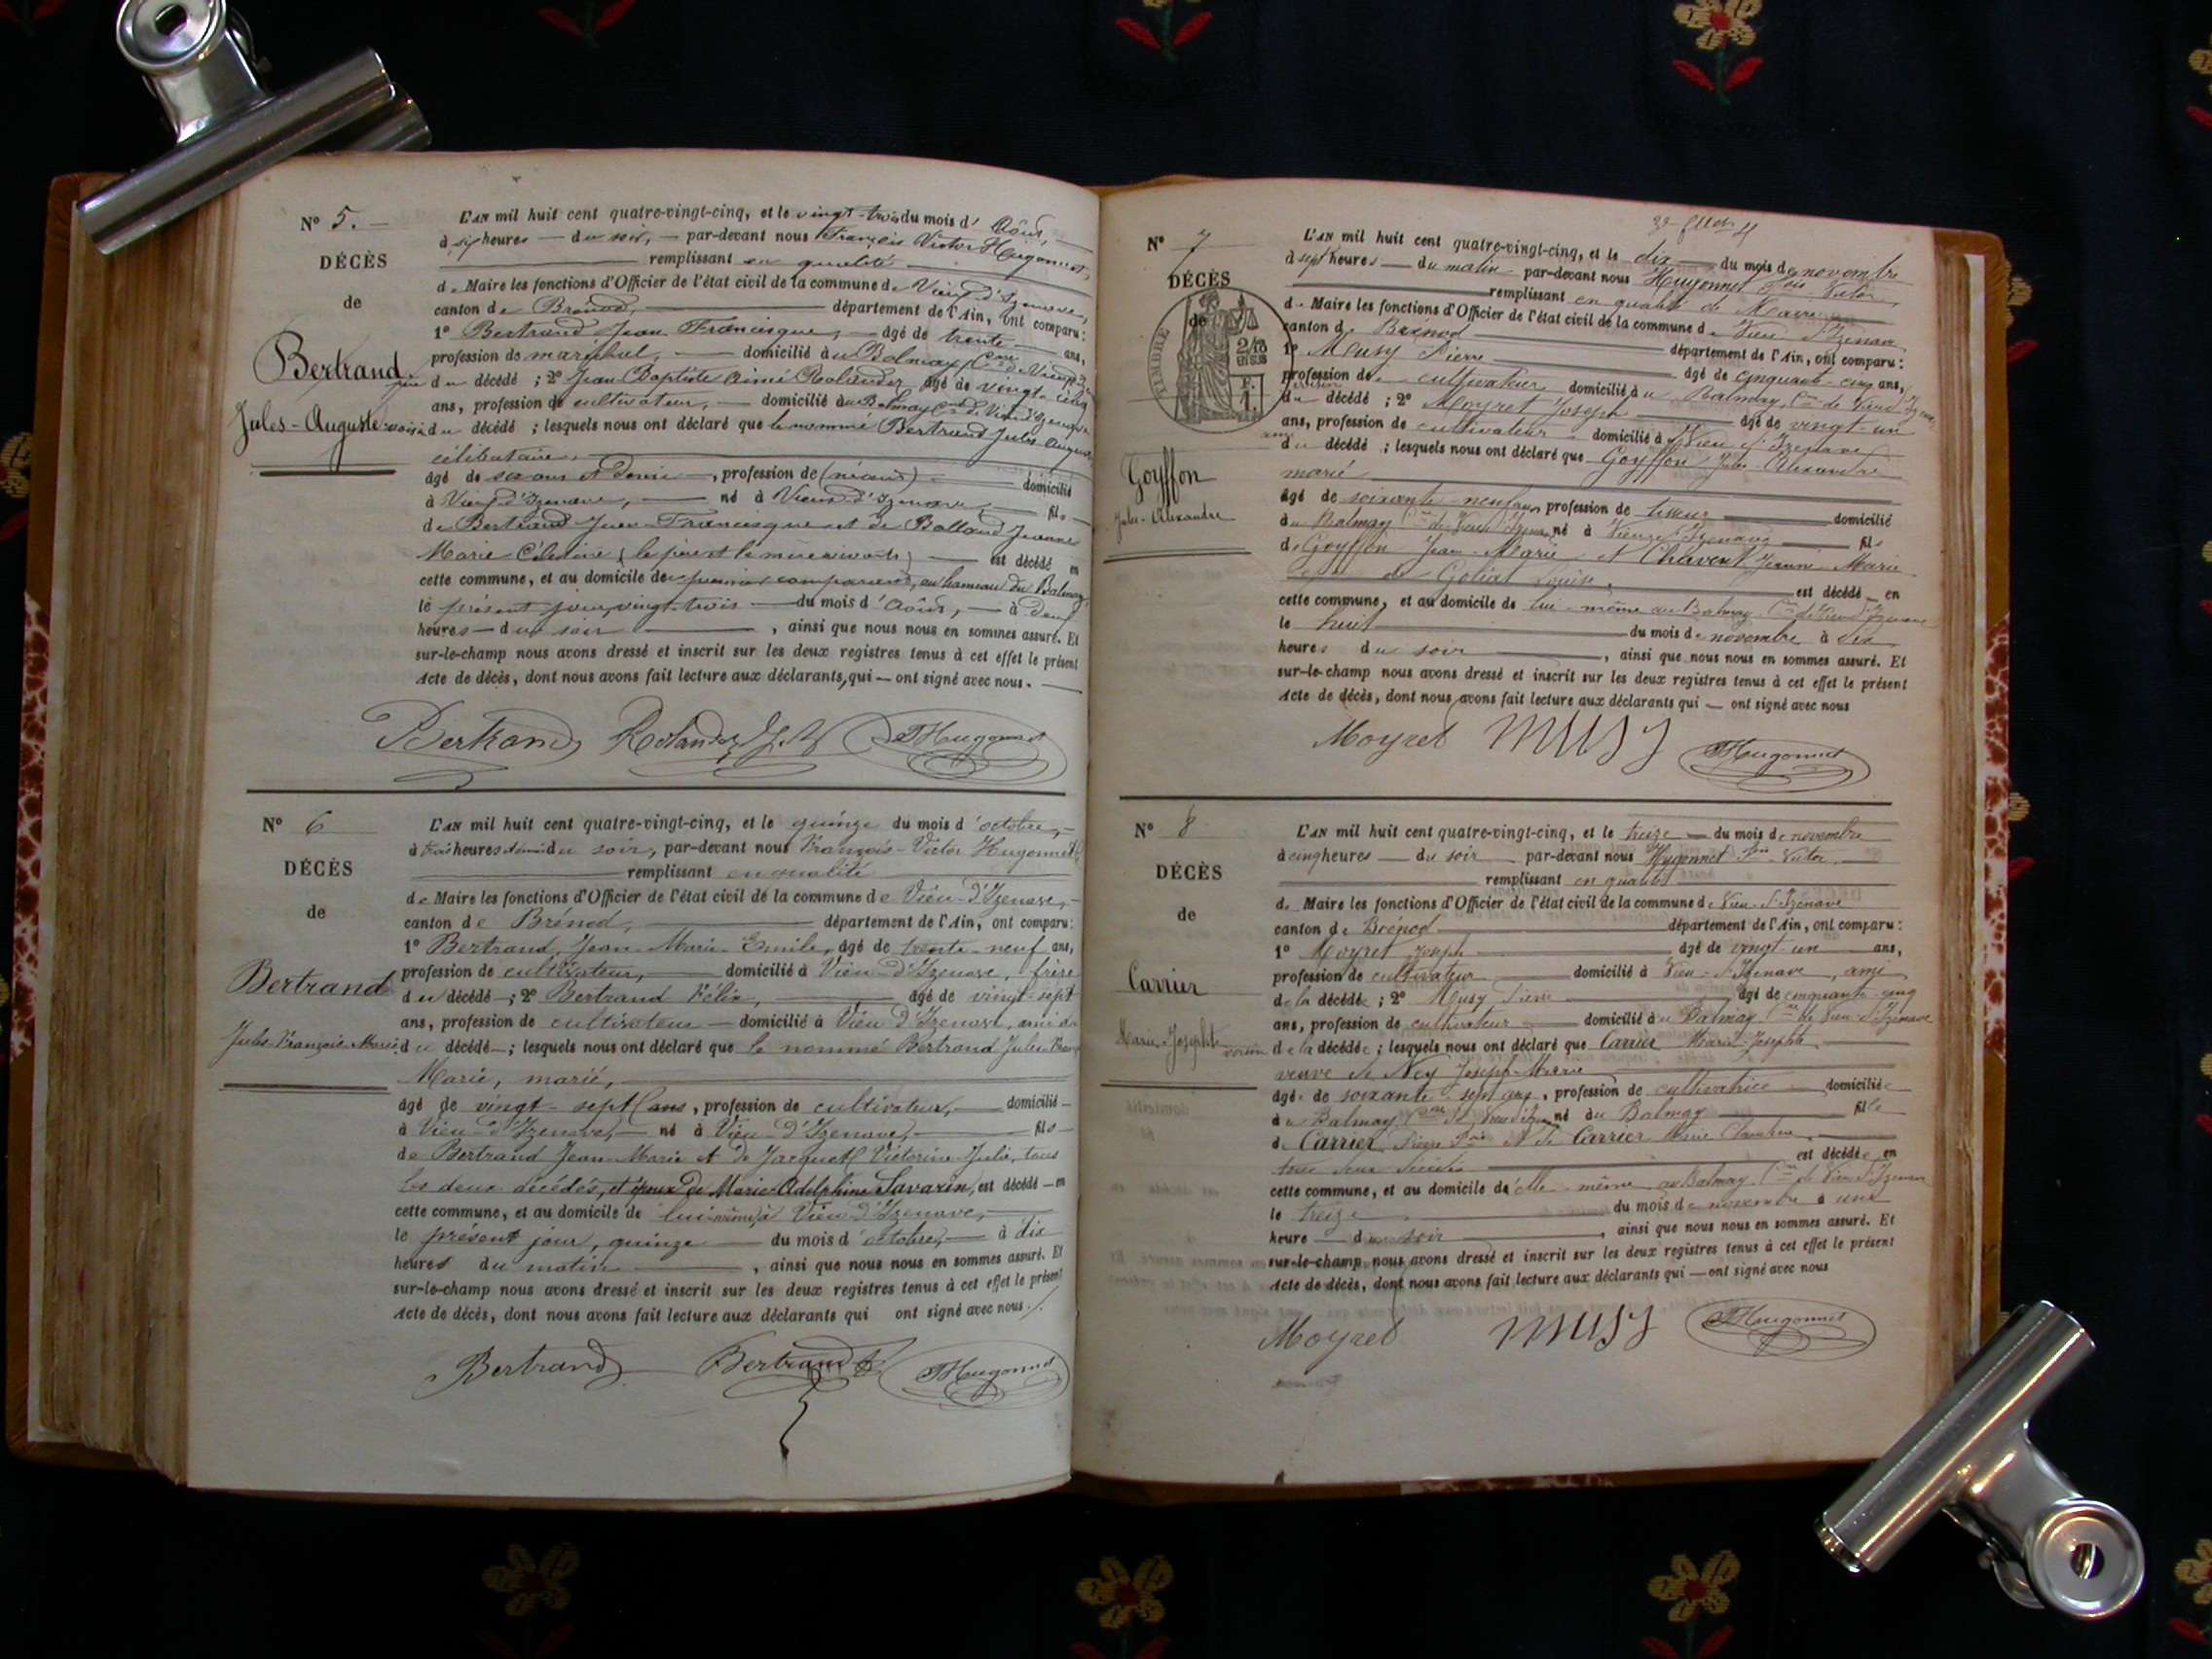 N° 5.
DÉCÈS
de
Bertrand
Jules-Auguste
L'AN mil huit cent quatre-vingt-cinq, et le vingt-trois du mois d' Août,
à six heures du soir, par-devant nous François Victor Hugonnet,
remplissant en qualité
de Maire les fonctions d'Officier de l'état civil de la commune de Vieu-d'Izenave,
canton de Brénod, département de l'Ain, ont comparu :
1° Bertrand Jean Francisque, âgé de trente ans,
profession de maréchal, domicilié au Balmay Cne de Vieu d'Iz
père du décédé ; 2° Jean Baptiste Aimé Rolandez âgé de vingt-cinq
ans, profession de cultivateur, domicilié au Balmay Cne de Vieu d'Izenave
voisin du décédé ; lesquels nous ont déclaré que le nommé Bertrand Jules Auguste
célibataire
âgé de six ans et demi, profession de (néant) domicilié
à Vieu-d'Izenave, né à Vieu-d'Izenave, fils
de Bertrand Jean-Francisque et de Balland Jeanne
Marie (le père et la mère vivants) est décédé en
cette commune, et au domicile du premier comparant, au hameau du Balmay
le présent jour, vingt-trois du mois d' Août, à deux
heures du soir, ainsi que nous nous en sommes assuré. Et
sur-le-champ nous avons dressé et inscrit sur les deux registres tenus à cet effet le présent
Acte de décès, dont nous avons fait lecture aux déclarants, qui ont signé avec nous.
Bertrand Rolandez J.B. Hugonnet
N° 6
DÉCÈS
de
Bertrand
Jules-François-Marie
L'AN mil huit cent quatre-vingt-cinq, et le quinze du mois d'octobre,
à trois heures et demi du soir, par-devant nous François-Victor Hugonnet
remplissant en qualité
de Maire les fonctions d'Officier de l'état civil de la commune de Vieu-d'Izenave,
canton de Brénod, département de l'Ain, ont comparu :
1° Bertrand, Jean-Marie-Emile, âgé de trente-neuf ans,
profession de cultivateur, domicilié à Vieu-d'Izenave, frère
du décédé ; 2° Bertrand Félix, âgé de vingt-sept
ans, profession de cultivateur domicilié à Vieu d'Izenave, ami du
du décédé ; lesquels nous ont déclaré que le nommé Bertrand Jules-Franç
Marie, marié,
âgé de vingt-sept ans, profession de cultivateur, domicilié
à Vieu-d'Izenave, né à Vieu-d'Izenave, fils
de Bertrand Jean-Marie et de Jacquet Victorine-Julie, tous
les deux décédés, et époux de Marie-Adelphine Savarin, est décédé en
cette commune, et au domicile de lui-même, à Vieu-d'Izenave,
le présent jour, quinze du mois d'octobre, à dix
heures du matin, ainsi que nous nous en sommes assuré. Et
sur-le-champ nous avons dressé et inscrit sur les deux registres tenus à cet effet le présent
Acte de décès, dont nous avons fait lecture aux déclarants qui ont signé avec nous.
Bertrand Bertrand F. Hugonnet
N° 7
DÉCÈS
de
TIMBRE
Goyffon
Jules-Alexandre
L'AN mil huit cent quatre-vingt-cinq, et le dix du mois de novembre
à sept heures du matin par-devant nous Hugonnet Fois Victor
remplissant en qualité de Maire
de Maire les fonctions d'Officier de l'état civil de la commune de Vieu d'Izenave
canton de Brénod département de l'Ain, ont comparu :
1° Musy Pierre âgé de cinquante-cinq ans,
profession de cultivateur domicilié au Balmay, Cne de Vieu d'Izenave
voisin du décédé ; 2° Moyret Joseph âgé de vingt-un
ans, profession de cultivateur domicilié à Vieu d'Izenave
ami du décédé ; lesquels nous ont déclaré que Goyffon Jules-Alexandre
marié
âgé de soixante-neuf ans, profession de tisseur domicilié
au Balmay Cne de Vieu d'Izenave né à Vieu d'Izenave fils
de Goyffon Jean-Marie et Chavent Jeanne-Marie
époux de Goliat Louise, est décédé en
cette commune, et au domicile de lui-même au Balmay Cne de Vieu d'Izenave
le huit du mois de novembre à dix
heures du soir, ainsi que nous nous en sommes assuré. Et
sur-le-champ nous avons dressé et inscrit sur les deux registres tenus à cet effet le présent
Acte de décès, dont nous avons fait lecture aux déclarants qui ont signé avec nous
Moyret Musy Hugonnet
N° 8
DÉCÈS
de
Carrier
Marie-Josephte
L'AN mil huit cent quatre-vingt-cinq, et le treize du mois de novembre
à cinq heures du soir par-devant nous Hugonnet Fois-Victor
remplissant en qualité
de Maire les fonctions d'Officier de l'état civil de la commune de Vieu-d'Izenave
canton de Brénod département de l'Ain, ont comparu :
1° Moyret Joseph âgé de vingt-un ans,
profession de cultivateur domicilié à Vieu-d'Izenave, ami
de la décédée ; 2° Musy Pierre âgé de cinquante-cinq
ans, profession de cultivateur domicilié au Balmay Cne de Vieu-d'Izenave
voisin de la décédée ; lesquels nous ont déclaré que Carrier Marie-Josephte
veuve de Ney Joseph-Marie
âgée de soixante-sept ans, profession de cultivatrice domiciliée
au Balmay Cne de Vieu d'Izenave née au Balmay fille
de Carrier Pierre Fois et de Carrier Marie Claudine
tous deux décédés est décédée en
cette commune, et au domicile d'elle-même au Balmay Cne de Vieu d'Izenave
le treize du mois de novembre à une
heure du soir, ainsi que nous nous en sommes assuré. Et
sur-le-champ nous avons dressé et inscrit sur les deux registres tenus à cet effet le présent
Acte de décès, dont nous avons fait lecture aux déclarants qui ont signé avec nous
Moyret Musy Hugonnet